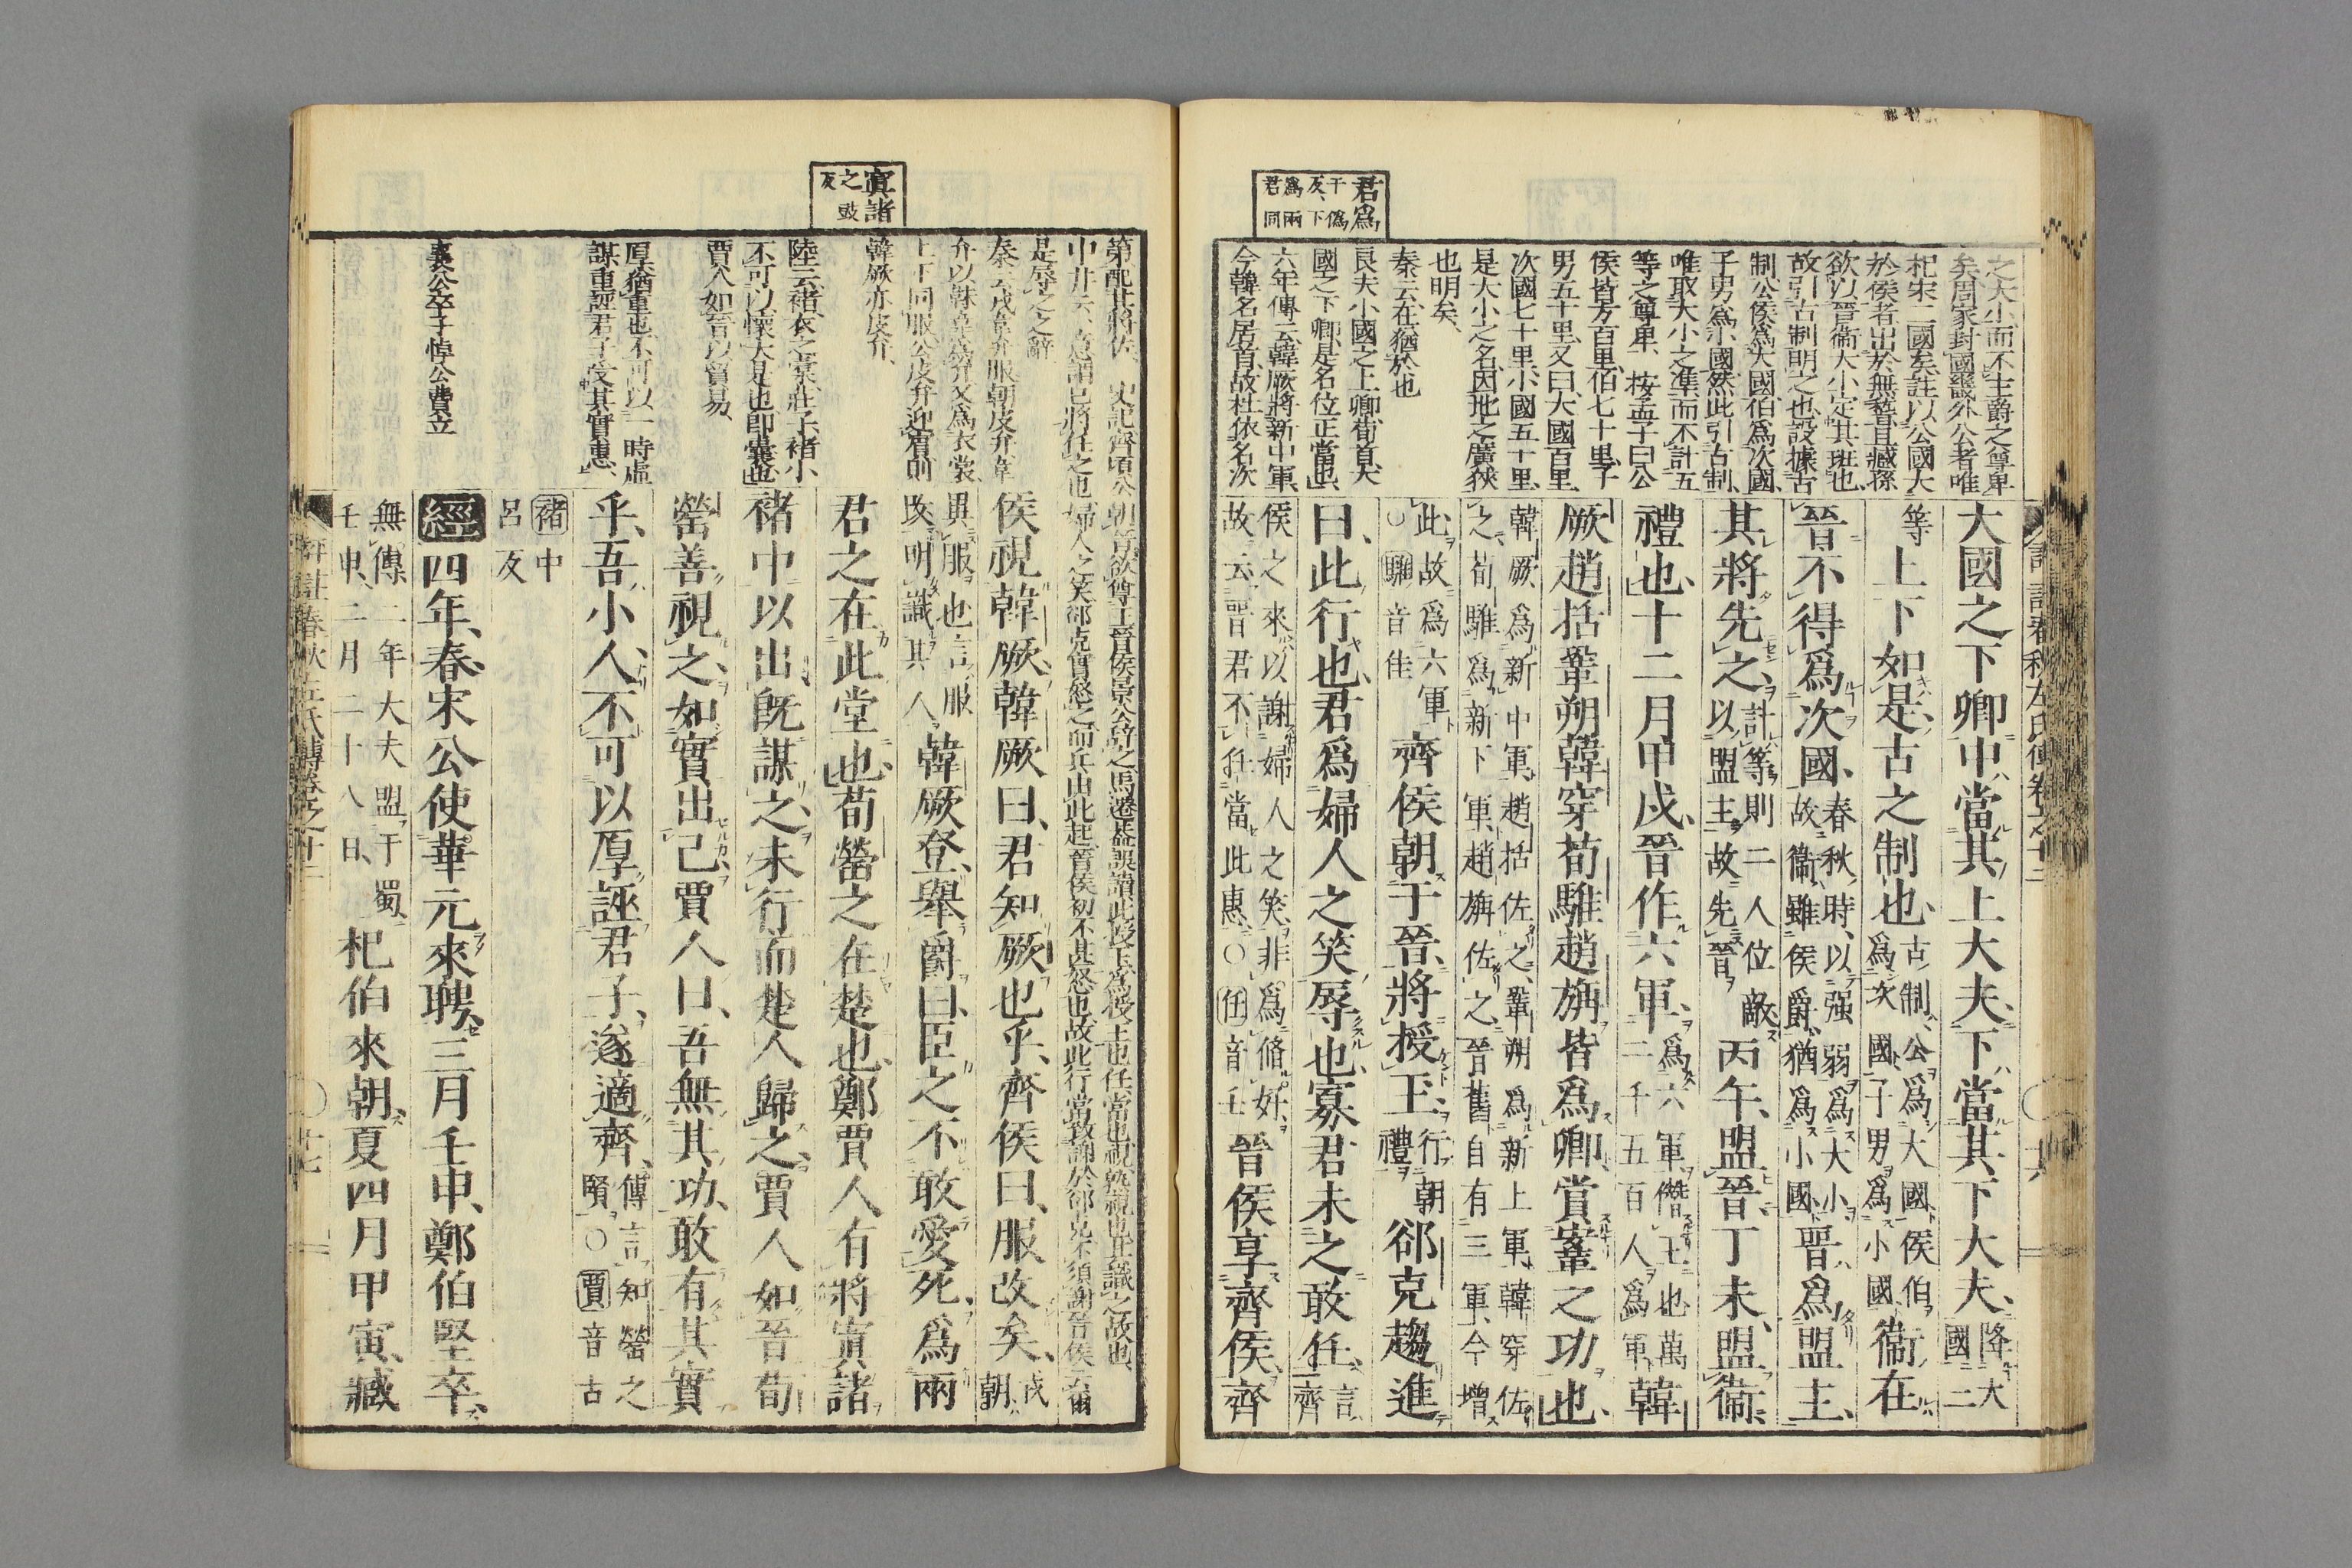 君爲
于僞
反下
爲兩
君同
之大小而不主爵之尊卑
矣周家封國畿外公者唯
杞宋二國矣註以公國大
於侯者出於無㨿且臧孫
欲以晉衞大小定其班也
故引古制明之也設據古
制公侯爲大國伯爲次國
子男爲小國然此引古制
唯取大小之凖而不計五
等之尊卑、按孟子曰公
侯皆方百里伯七十里子
男五十里又曰大國百里
次國七十里小國五十里
是大小之名因地之廣狹
也明矣、
秦云在猶於也
良夫小國之上卿荀首大
國之下卿是名位正當也
六年傳云韓厥將新中軍
今韓名居首故杜依名次
大國之下卿中當其上大夫、下當其下大夫、降大
國二
等上下如是、古之制也、古制、公爲大國侯伯
爲次國子男爲小國衞在
晉不得爲次國、春秋時、以强弱爲大小
故衞雖侯爵猶爲小國晉爲盟主、
其將先之、計等則二人位敵
以盟主故先晉丙午、盟晉丁未、盟衞、
禮也、十二月甲戌、晉作六軍、爲六軍僭王也萬
二千五百人爲軍韓
厥趙括鞏朔韓穿荀騅趙旃皆爲卿賞鞌之功也、
韓厥爲新中軍、趙括佐之、鞏朔爲新上軍、韓穿佐
之、荀騅爲新下軍、趙旃佐之、晉舊自有三軍、今增
此、故爲六軍
○騅音佳齊侯朝于晉、將授玉、行朝
禮郤克趨進
曰、此行也、君爲婦人之笑辱也、寡君未之敢任、言
齊
侯之來以謝婦人之笑、非爲脩好、
故云晉君不任當此惠○任音壬晉侯享齊侯、齊
寘諸
之豉
反
第配廿將佐、　史記齊頃公朝晉欲尊王晉侯景公辭之
秦云戎韋弁服朝皮弁韋
弁以韎韋爲弁又爲衣裳、
上下同服公皮弁迎賓則
韓厥亦皮弁、
陸云褚衣之橐莊子褚小
不可以懷大是也即囊也
賈人如晉以貿易、
厚猶重也不可以一時虛
謀重誣君子受其實惠、
襄公卒子悼公費立
侯視韓厥、韓厥曰、君知厥也乎、齊侯曰、服改矣、戎
朝
異服也言服
改明識其人韓厥登、舉爵曰、臣之不敢愛死、爲兩
君之在此堂也、荀罃之在楚也、鄭賈人有將寘諸
褚中以出、旣謀之、未行、而楚人歸之、賈人如晉荀
罃善視之、如實出己賈人曰、吾無其功、敢有其實
乎、吾小人、不可以厚誣君子、遂適齊、傳言知罃之
賢○賈音古
褚中
呂反
經四年、春、宋公使華元來聘、三月壬申、鄭伯堅卒、
無傳二年大夫盟于蜀
壬申、二月二十八日、杞伯來朝夏四月甲寅、臧